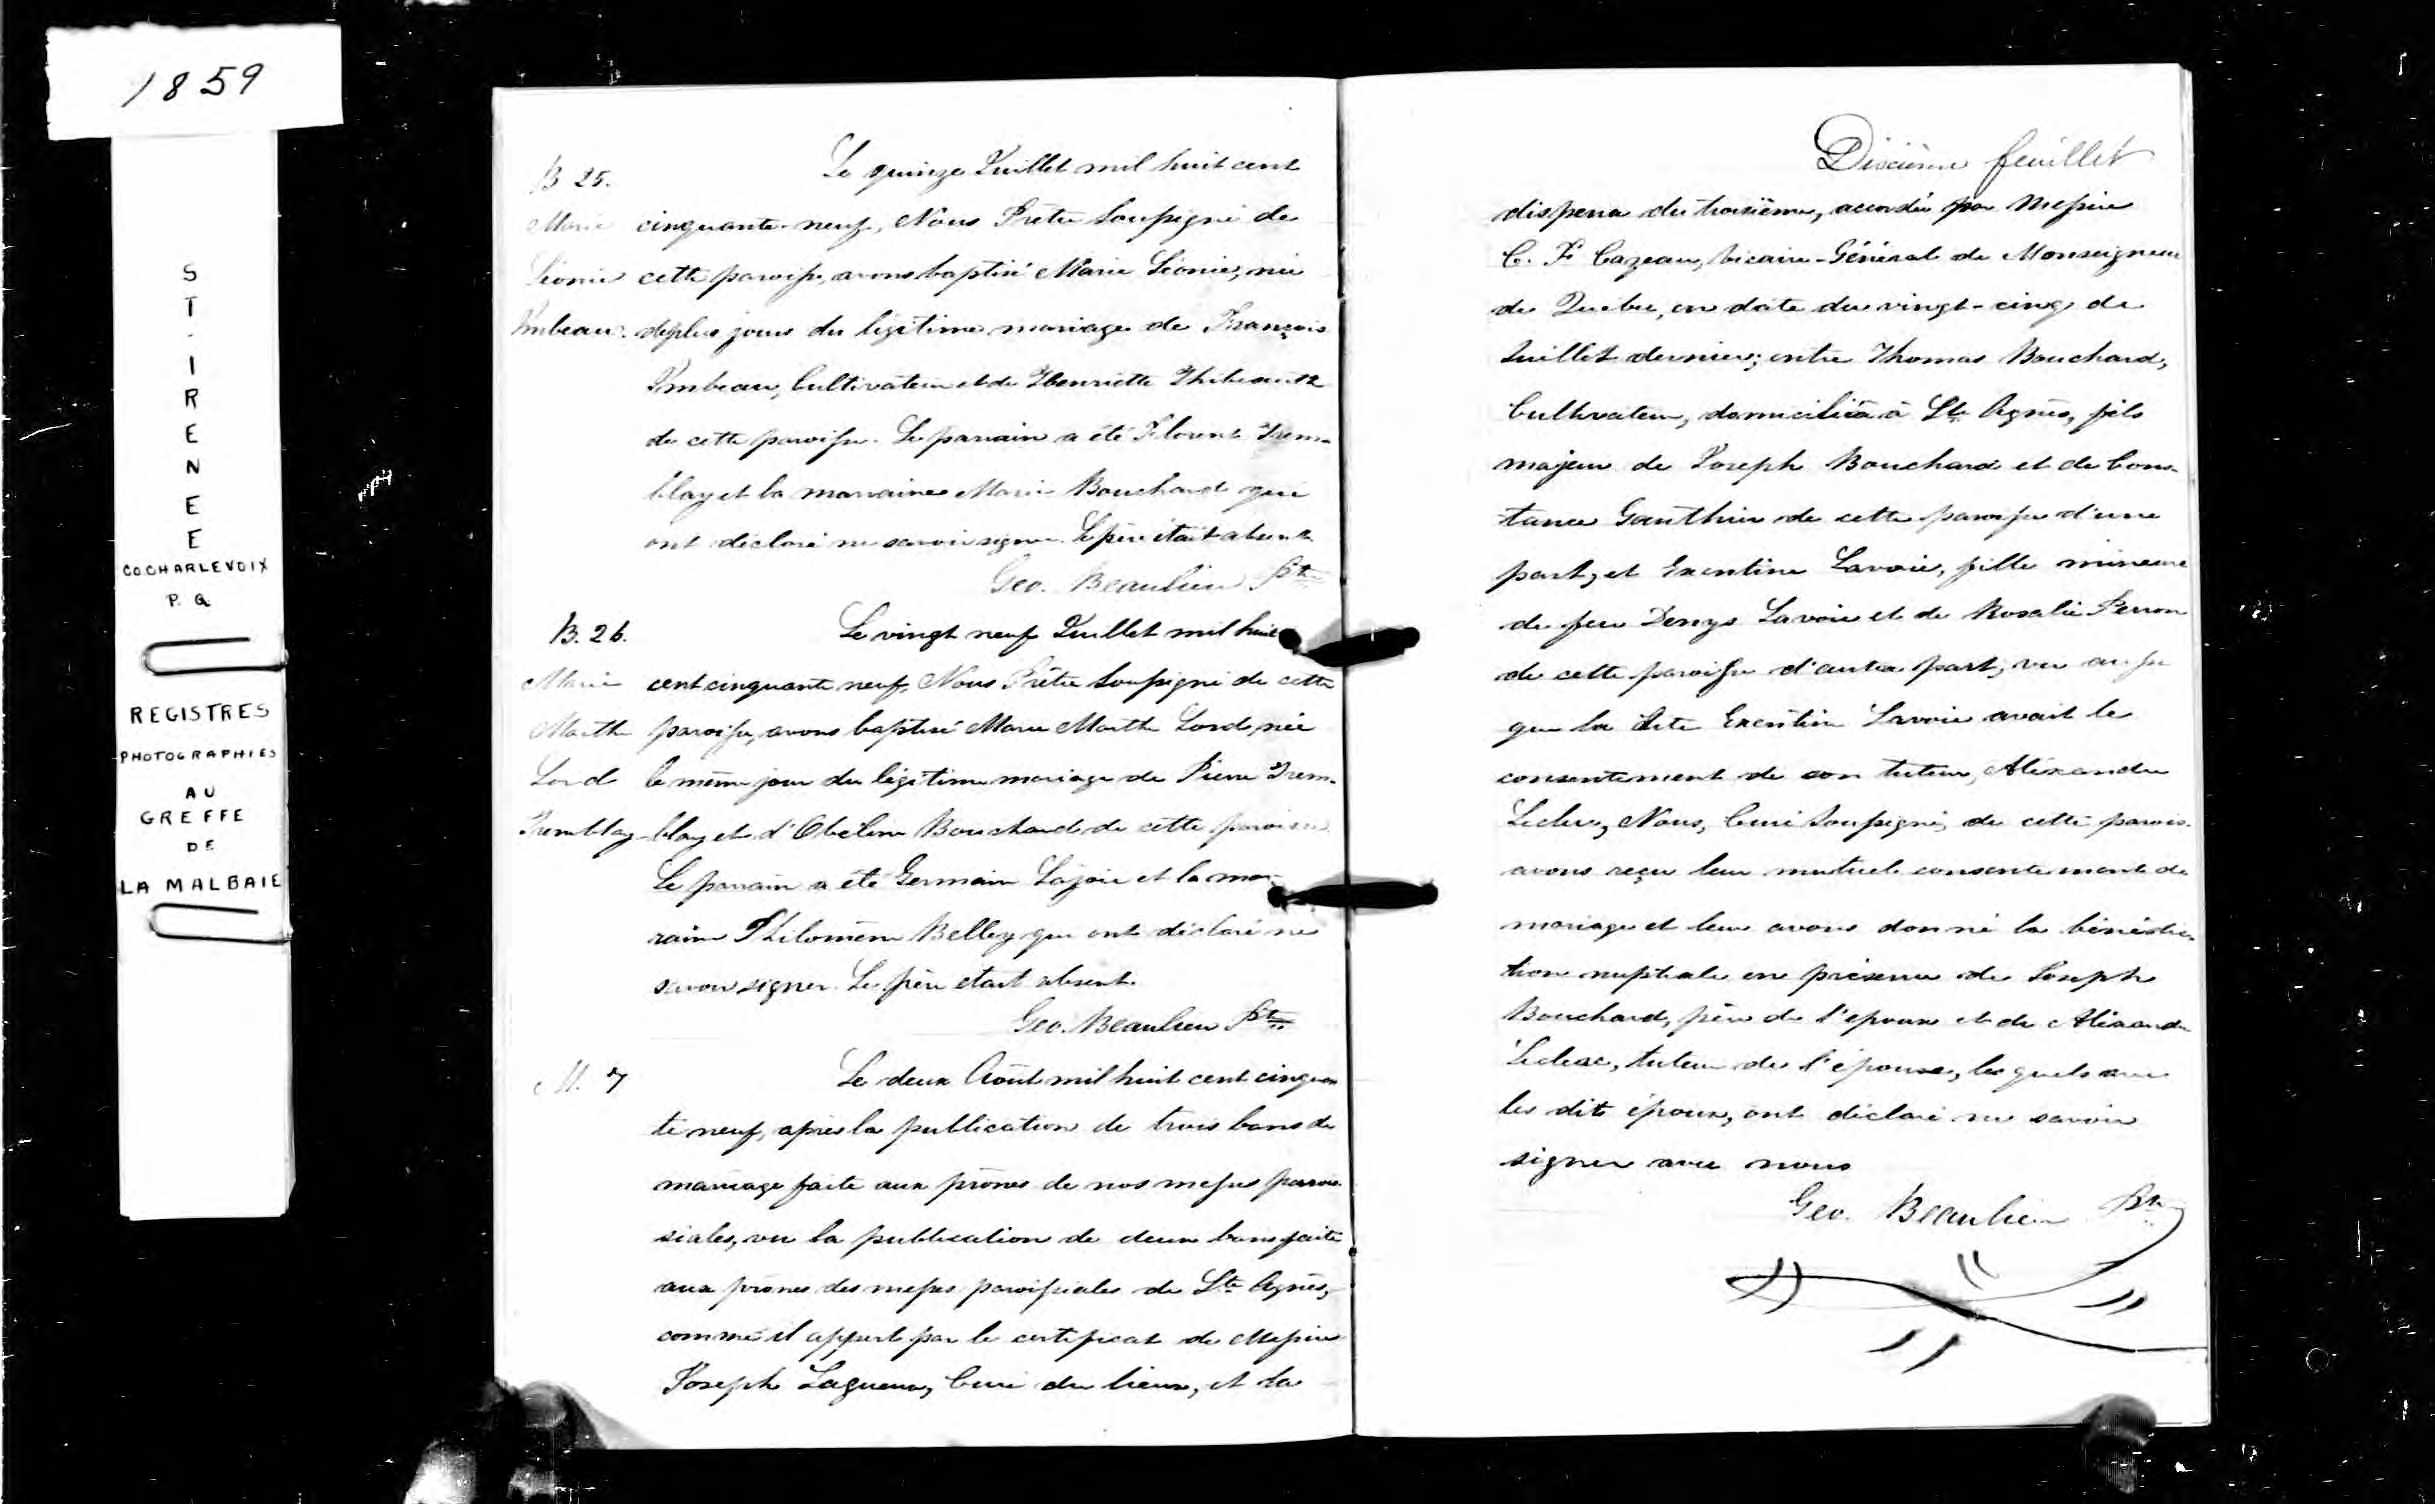 1859
ST. IRENEE
CO CHARLEVOIX
P. Q
REGISTRES
PHOTOGRAPHIES
AU
GREFFE
DE
LA MALBAIE
B 25.
Marie
Léonie
Imbeau.
Le quinze Juillet mil huit cent
cinquante-neuf, Nous Prêtre Soussigné de
cette paroisse, avons baptisé Marie Léonie, née
jours du légitime mariage de François
Imbeau, Cultivateur et de Henriette Thibeault
de cette paroisse. Le parrain a été Florent Trem-
blay et la marraine Marie Bouchard qui
ont déclaré ne savoir signer. Le père était absent
Geo. Beaulieu Ptre
B. 26.
Marie
Marthe
Lord
Tremblay
Le vingt neuf Juillet mil huit
cent cinquante neuf, Nous Prêtre Soussigné de cette
paroisse, avons baptisé Marie Marthe Lord, née
le même jour du légitime mariage de Pierre Trem-
blay et d'Obéline Bouchard de cette paroisse
Le parrain a été Germain Lajoie et la mar-
raine Philomène Belley qui ont déclaré ne
savoir signer. Le père etait absent.
Geo. Beaulieu Ptre
M. 7
Le deux Août mil huit cent cinquan
te neuf, après la publication de trois bans de
mariage faite aux prônes de nos messes parois-
siales, vu la publication de deux bans faite
aux prônes des messes paroissiales de Ste Agnès,
comme il appert par le certificat de Messire
Joseph Lagueux, Curé du lieux, et la
Dixième feuillet
dispense du troisième, accordée par Messire
C. F. Cazeau, Vicaire-Général de Monseigneur
de Québec, en date du vingt-cinq de
Juillet dernier; entre Thomas Bouchard,
Cultivateur, domicilié à Ste Agnès, fils
majeur de Joseph Bouchard et de Cons-
tance Gauthier de cette paroisse d'une
part, et Exentine Lavoie, fille mineure
de feu Denys Lavoie et de Rosalie Perron
de cette paroisse d'autre part, vu aussi
que la dite Exentine Lavoie avait le
consentement de son tuteur, Aléxandre
Leclerc, Nous, Curé Soussigné, de cette parois.
avons reçu leur mutuel consentement de
mariage et leur avons donné la bénédic-
tion nuptiale en présence de Joseph
Bouchard, père de l'epoux et de Aléxandre
Leclerc, tuteur de l'épouse, lesquels avec
les dits époux, ont déclaré ne savoir
signer avec nous
Geo. Beaulieu Ptre